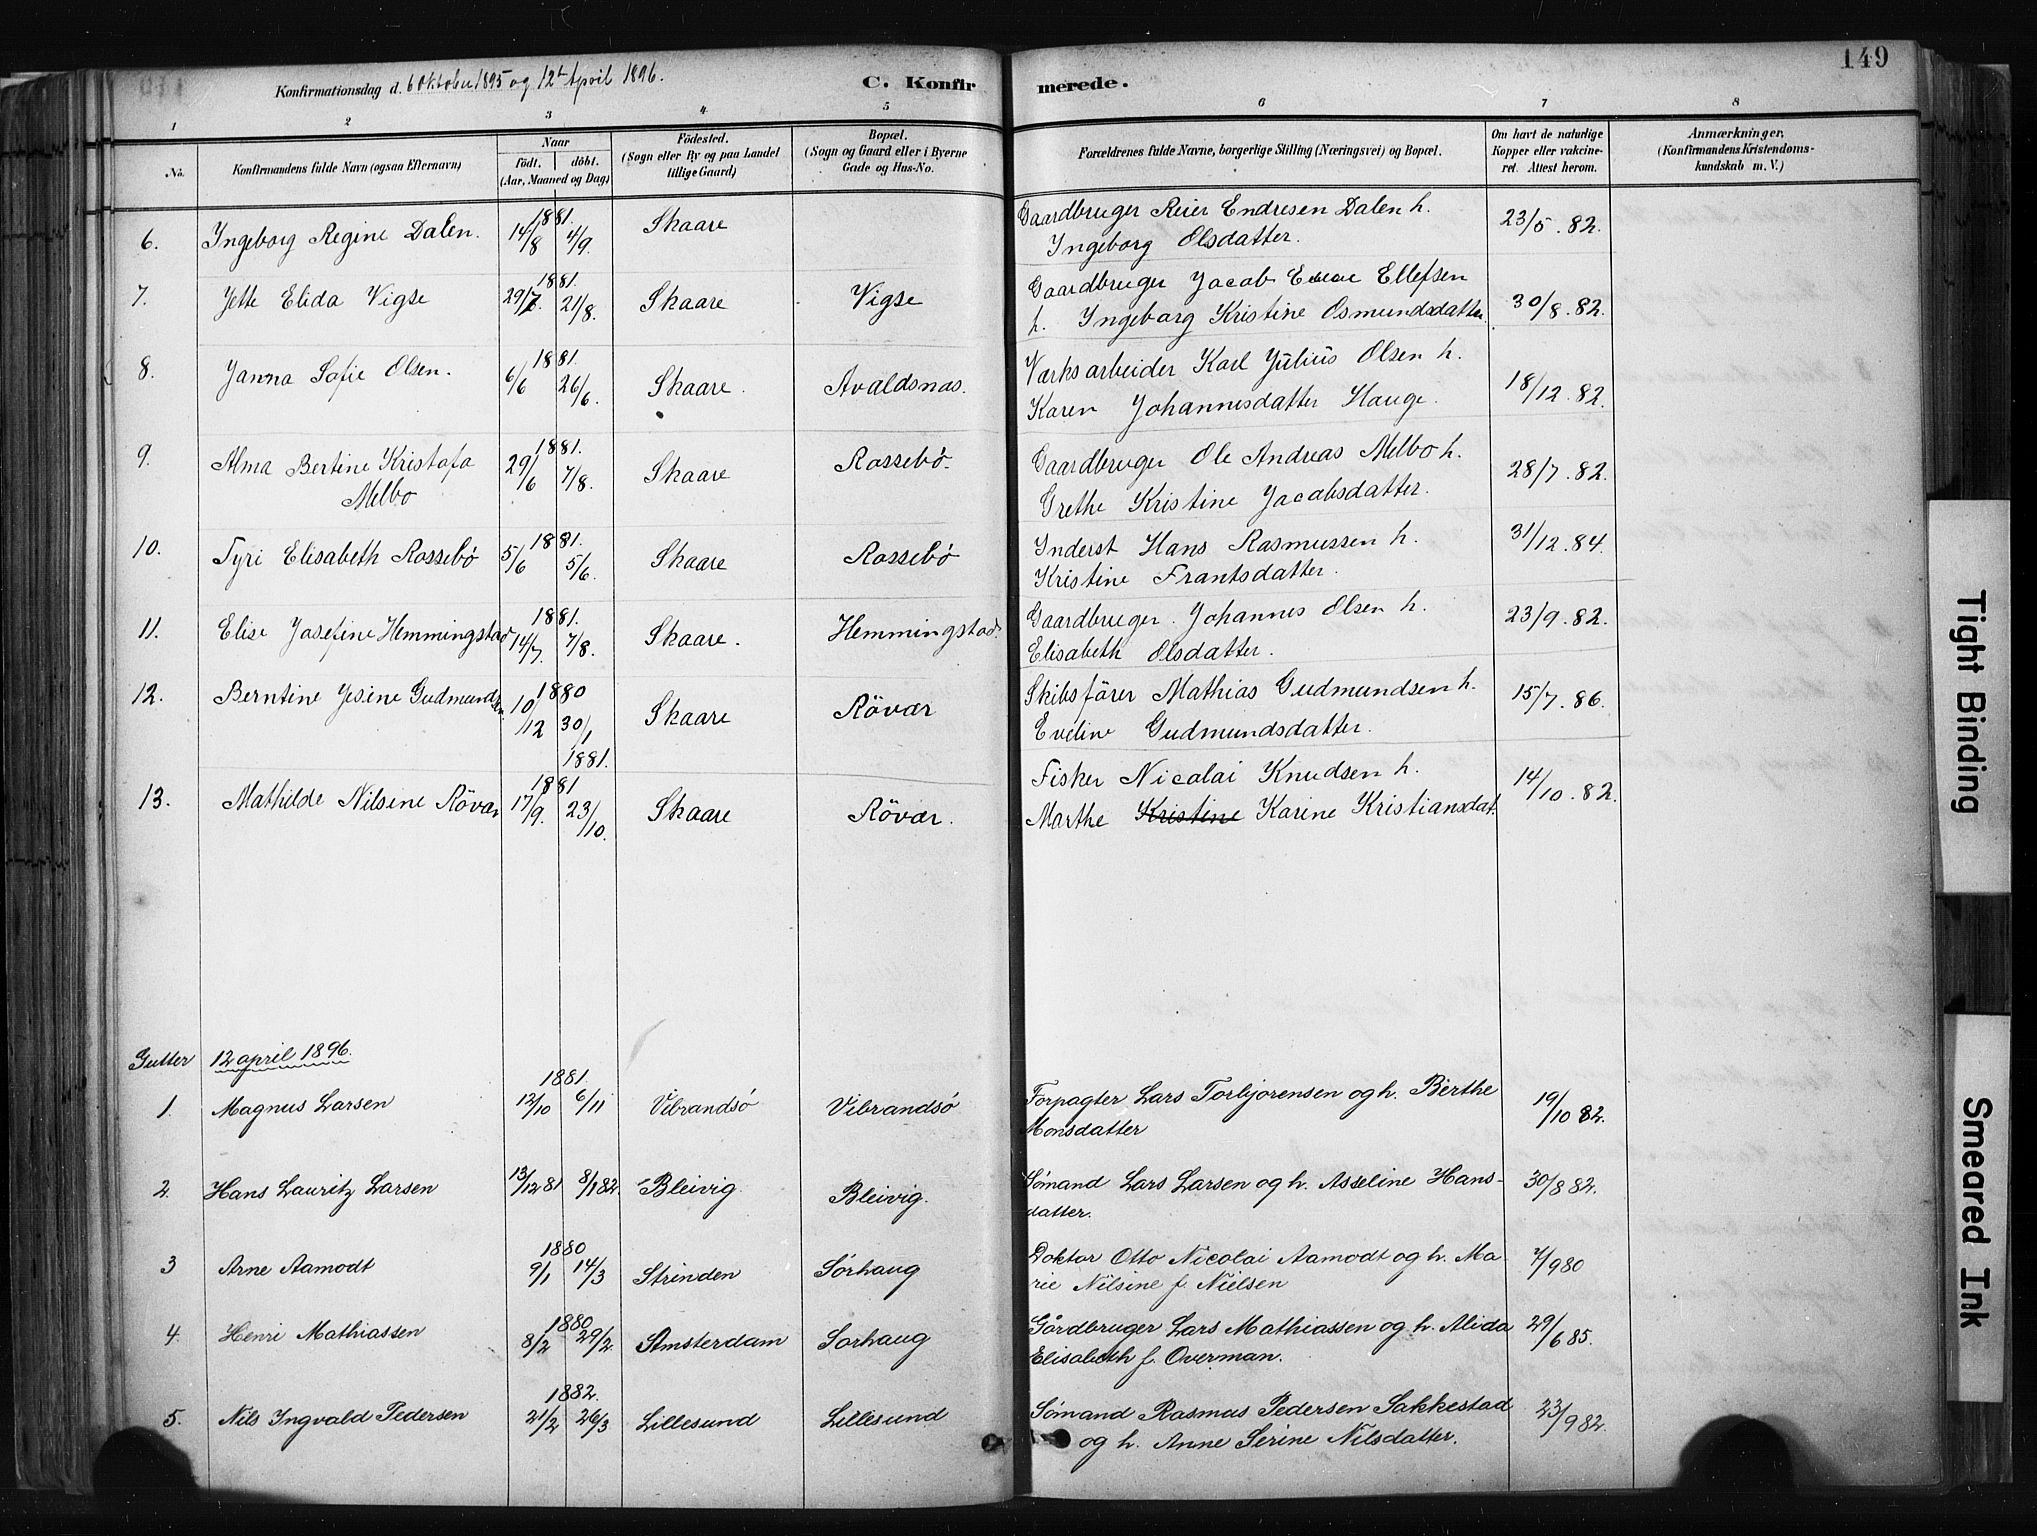 149
Konfirmationsdag d. 6 Oktober 1895 og 12te April 1896.
C. Konfirmerede.
1 2 3 4 5 6 7 8
No.
Konfirmandens fulde Navn (ogsaa Efternavn)
Naar
födt. döbt.
(Aar, Maaned og Dag)
Födested.
(Sogn eller By og paa Landet
tillige Gaard)
Bopæl.
(Sogn og Gaard eller i Byerne
Gade og Hus-No.
Forældrenes fulde Navne, borgerlige Stilling (Næringsvei) og Bopæl.
Om havt de naturlige
Kopper eller vakcine-
ret. Attest herom.
Anmærkninger,
(Konfirmandens Kristendoms-
kundskab m. V.)
6. Ingeborg Regine Dalen. 1881. 14/8 4/9 Skaare Gaardbruger Reier Endresen Dalen h. 23/5. 82.
Ingeborg Olsdatter.
7. Jette Elida Vigse 1881. 29/7. 21/8. Skaare Vigse Gaardbruger Jacob Ellefsen 30/8. 82.
h. Ingeborg Kristine Osmundsdatter
8. Janna Sofie Olsen. 1881. 6/6 26/6. Skaare. Avaldsnas. Værksarbeider Karl Julius Olsen h. 18/12. 82.
Karen Johannesdatter Hauge.
9. Alma Bertine Kristofa 1881. 29/6 7/8. Skaare Rossebö. Gaardbruger Ole Andreas Melbo h. 28/7. 82.
Melbo Grethe Kristine Jacobsdatter.
10. Tyri Elisabeth Rossebö 1881. 5/6 5/6. Skaare Rossebö Inderst Hans Rasmussen h. 31/12. 84.
Kristine Frantsdatter.
11. Elise Josefine Hemmingstad 1881. 14/7. 7/8. Skaare. Hemmingstad. Gaardbruger. Johannes Olsen h. 23/9. 82.
Elisabeth Olsdatter.
12. Berntine Jesine Gudmundsen 1880 10/12 30/1 1881. Skaare Rövær Skibsförer Mathias Gudmundsen h. 15/7. 86.
Eveline Gudmundsdatter.
13. Mathilde Nilsine Rövær 1881 17/9. 23/10. Skaare Rövær. Fisker Nicolai Knudsen h. 14/10. 82.
Marthe Kristine Karine Kristiansdat.
Gutter 12 april 1896.
1. Magnus Larsen 1881. 12/10 6/11 Vibrandsö Vibrandsö Forpagter Lars Torbjorensen og h. Berthe 19/10 82.
Monsdatter
2. Hans Lauritz Larsen 13/12 81 8/1 82. Bleivig. Bleivig. Sømand Lars Larsen og h. Asseline Hans- 30/8 82.
datter.
3 Arne Aamodt 1880 9/1 14/3 Strinden Sörhaug Doktor Otto Nicolai Aamodt og h. Ma- 7/9 80
rie Nilsine f. Nielsen
4. Henri Mathiassen 1880 8/2 29/2. Amsterdam Sorhaug Gårdbruger Lars Mathiassen og h. Alida 29/6 85.
Elisabeth f. Overman.
5. Nils Ingvald Pedersen 1882. 21/2 26/3 Lillesund Lillesund Sømand Rasmus Pedersen Sakkestad 23/9 82.
og h. Anne Serine Nilsdatter.
Tight Binding
Smeared Ink